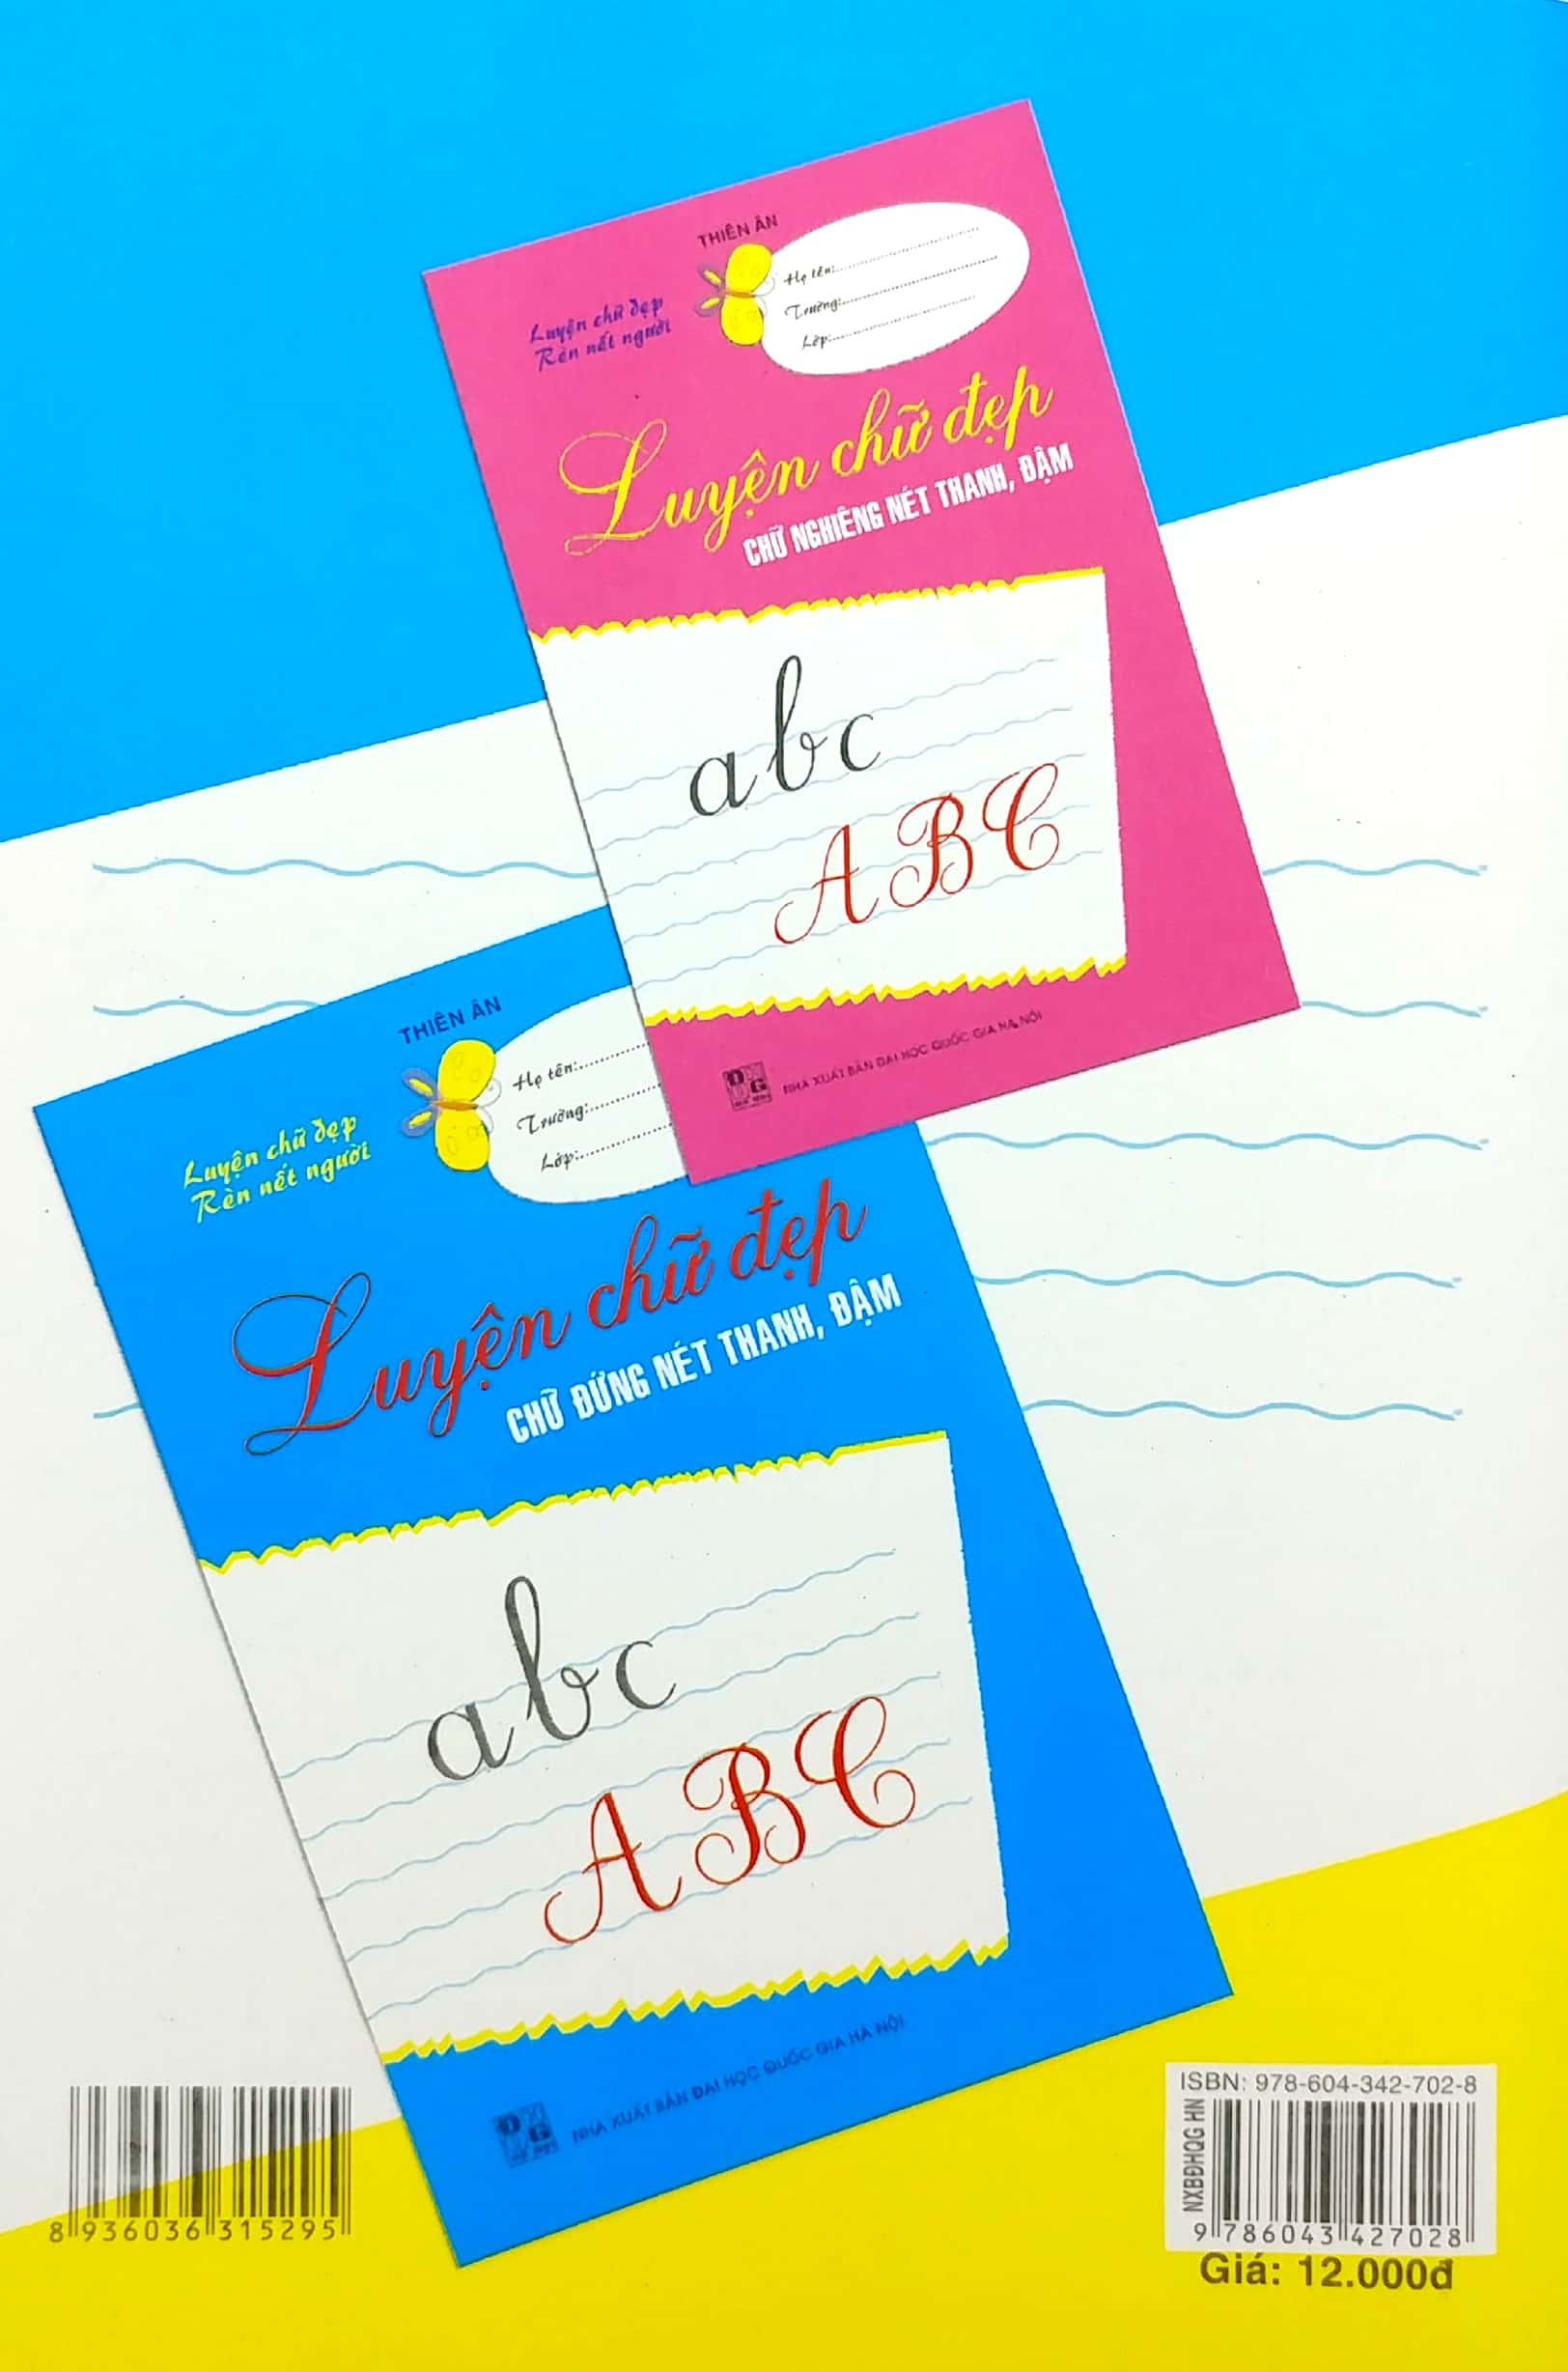 THIÊN ÂN
Họ tên:
Trường:
Lớp:
Luyện chữ đẹp
Rèn nết người
Luyện chữ đẹp
CHỮ NGHIÊNG NÉT THANH, ĐẬM
abc
ABC
NHÀ XUẤT BẢN ĐẠI HỌC QUỐC GIA HÀ NỘI
THIÊN ÂN
Họ tên:
Trường:
Lớp:
Luyện chữ đẹp
Rèn nết người
Luyện chữ đẹp
CHỮ ĐỨNG NÉT THANH, ĐẬM
abc
ABC
NHÀ XUẤT BẢN ĐẠI HỌC QUỐC GIA HÀ NỘI
8 936036 315295
ISBN: 978-604-342-702-8
NXBĐHQG HN
9 786043 427028
Giá: 12.000đ